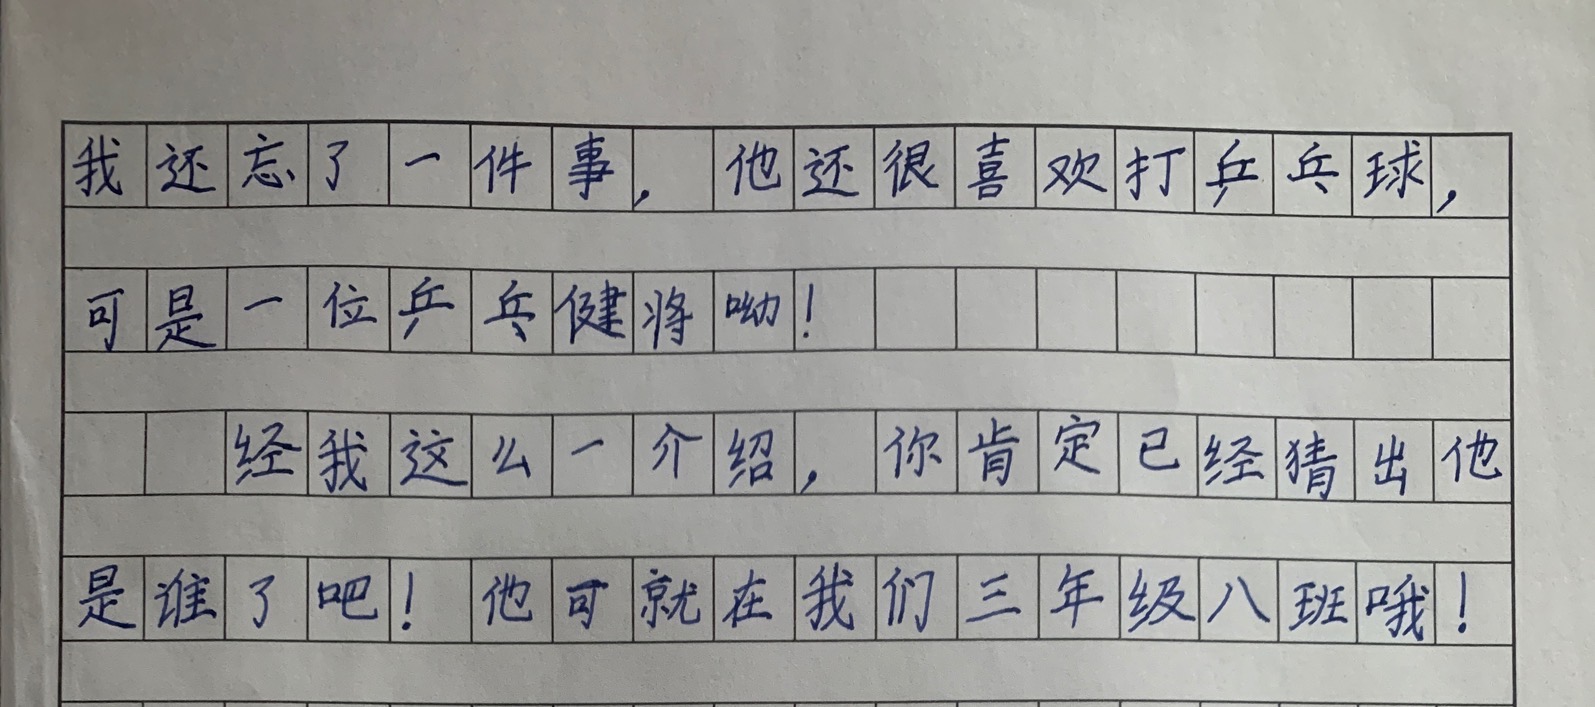 我还忘了一件事，他还很喜欢打乒乓球，
可是一位乒乓健将呦！
经我这么一介绍，你肯定已经猜出他
是谁了吧！他可就在我们三年级八班哦！